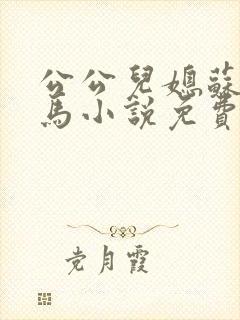 公公兒媳蘇
馬小說免費
党月霞